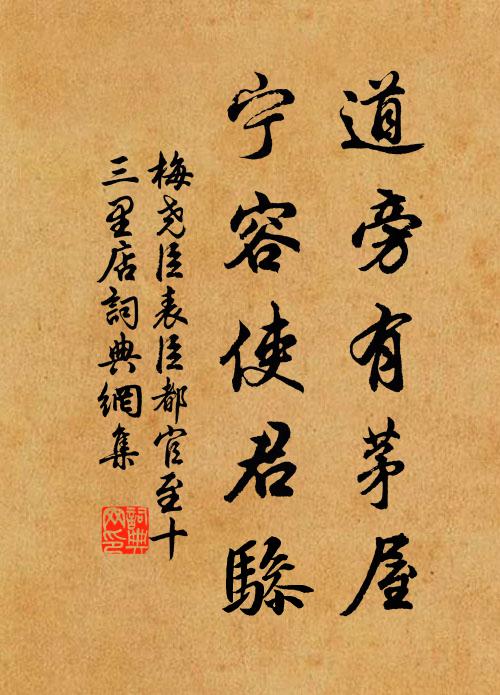 道旁有茅屋
宁容使君驂
梅尧臣表臣都官至十
三里店詞典網集
詞典网印